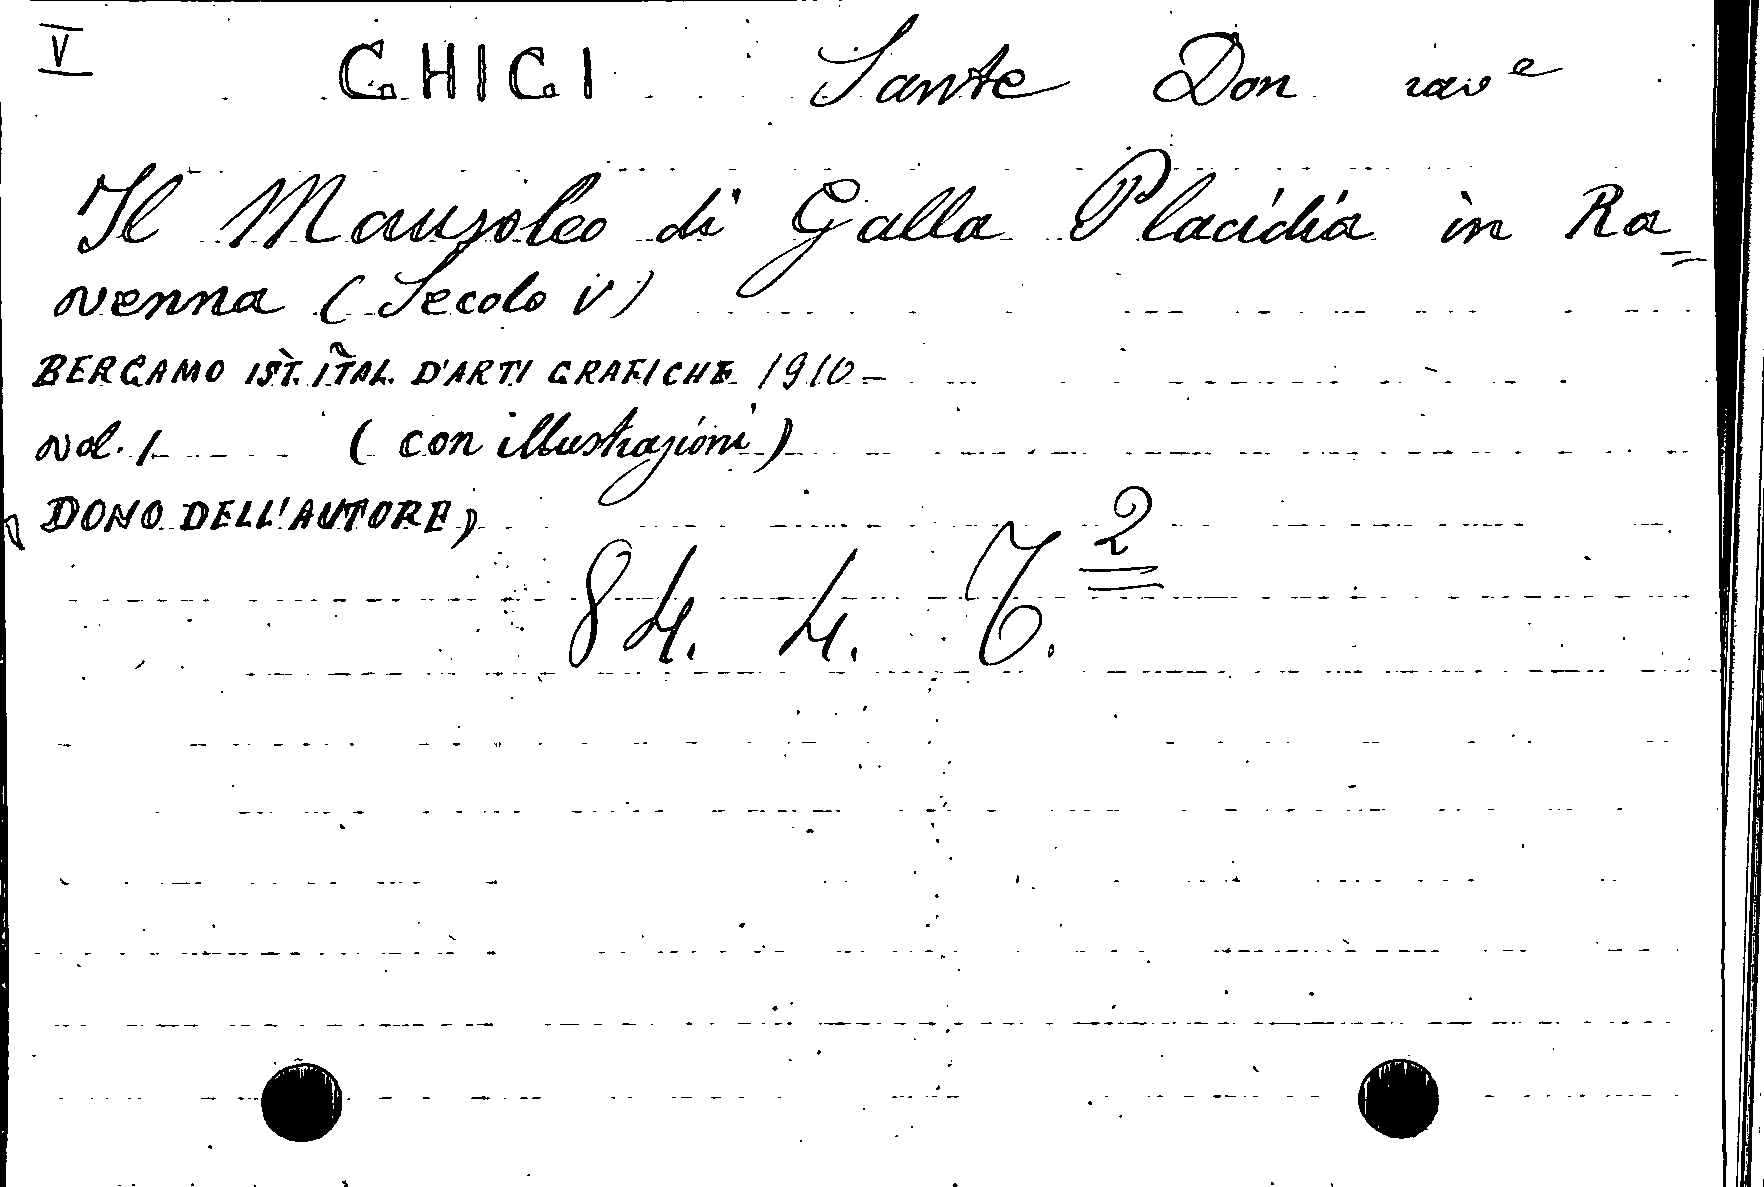 V GHIGI Sante Don rav^e
Il Mausoleo di Galla Placidia in Ra=
venna (Secolo V)
BERGAMO IST. ITAL. D'ARTI GRAFICHE 1910-
vol. 1 (con illustrazioni)
"DONO DELL'AUTORE"
84. 4. T.²